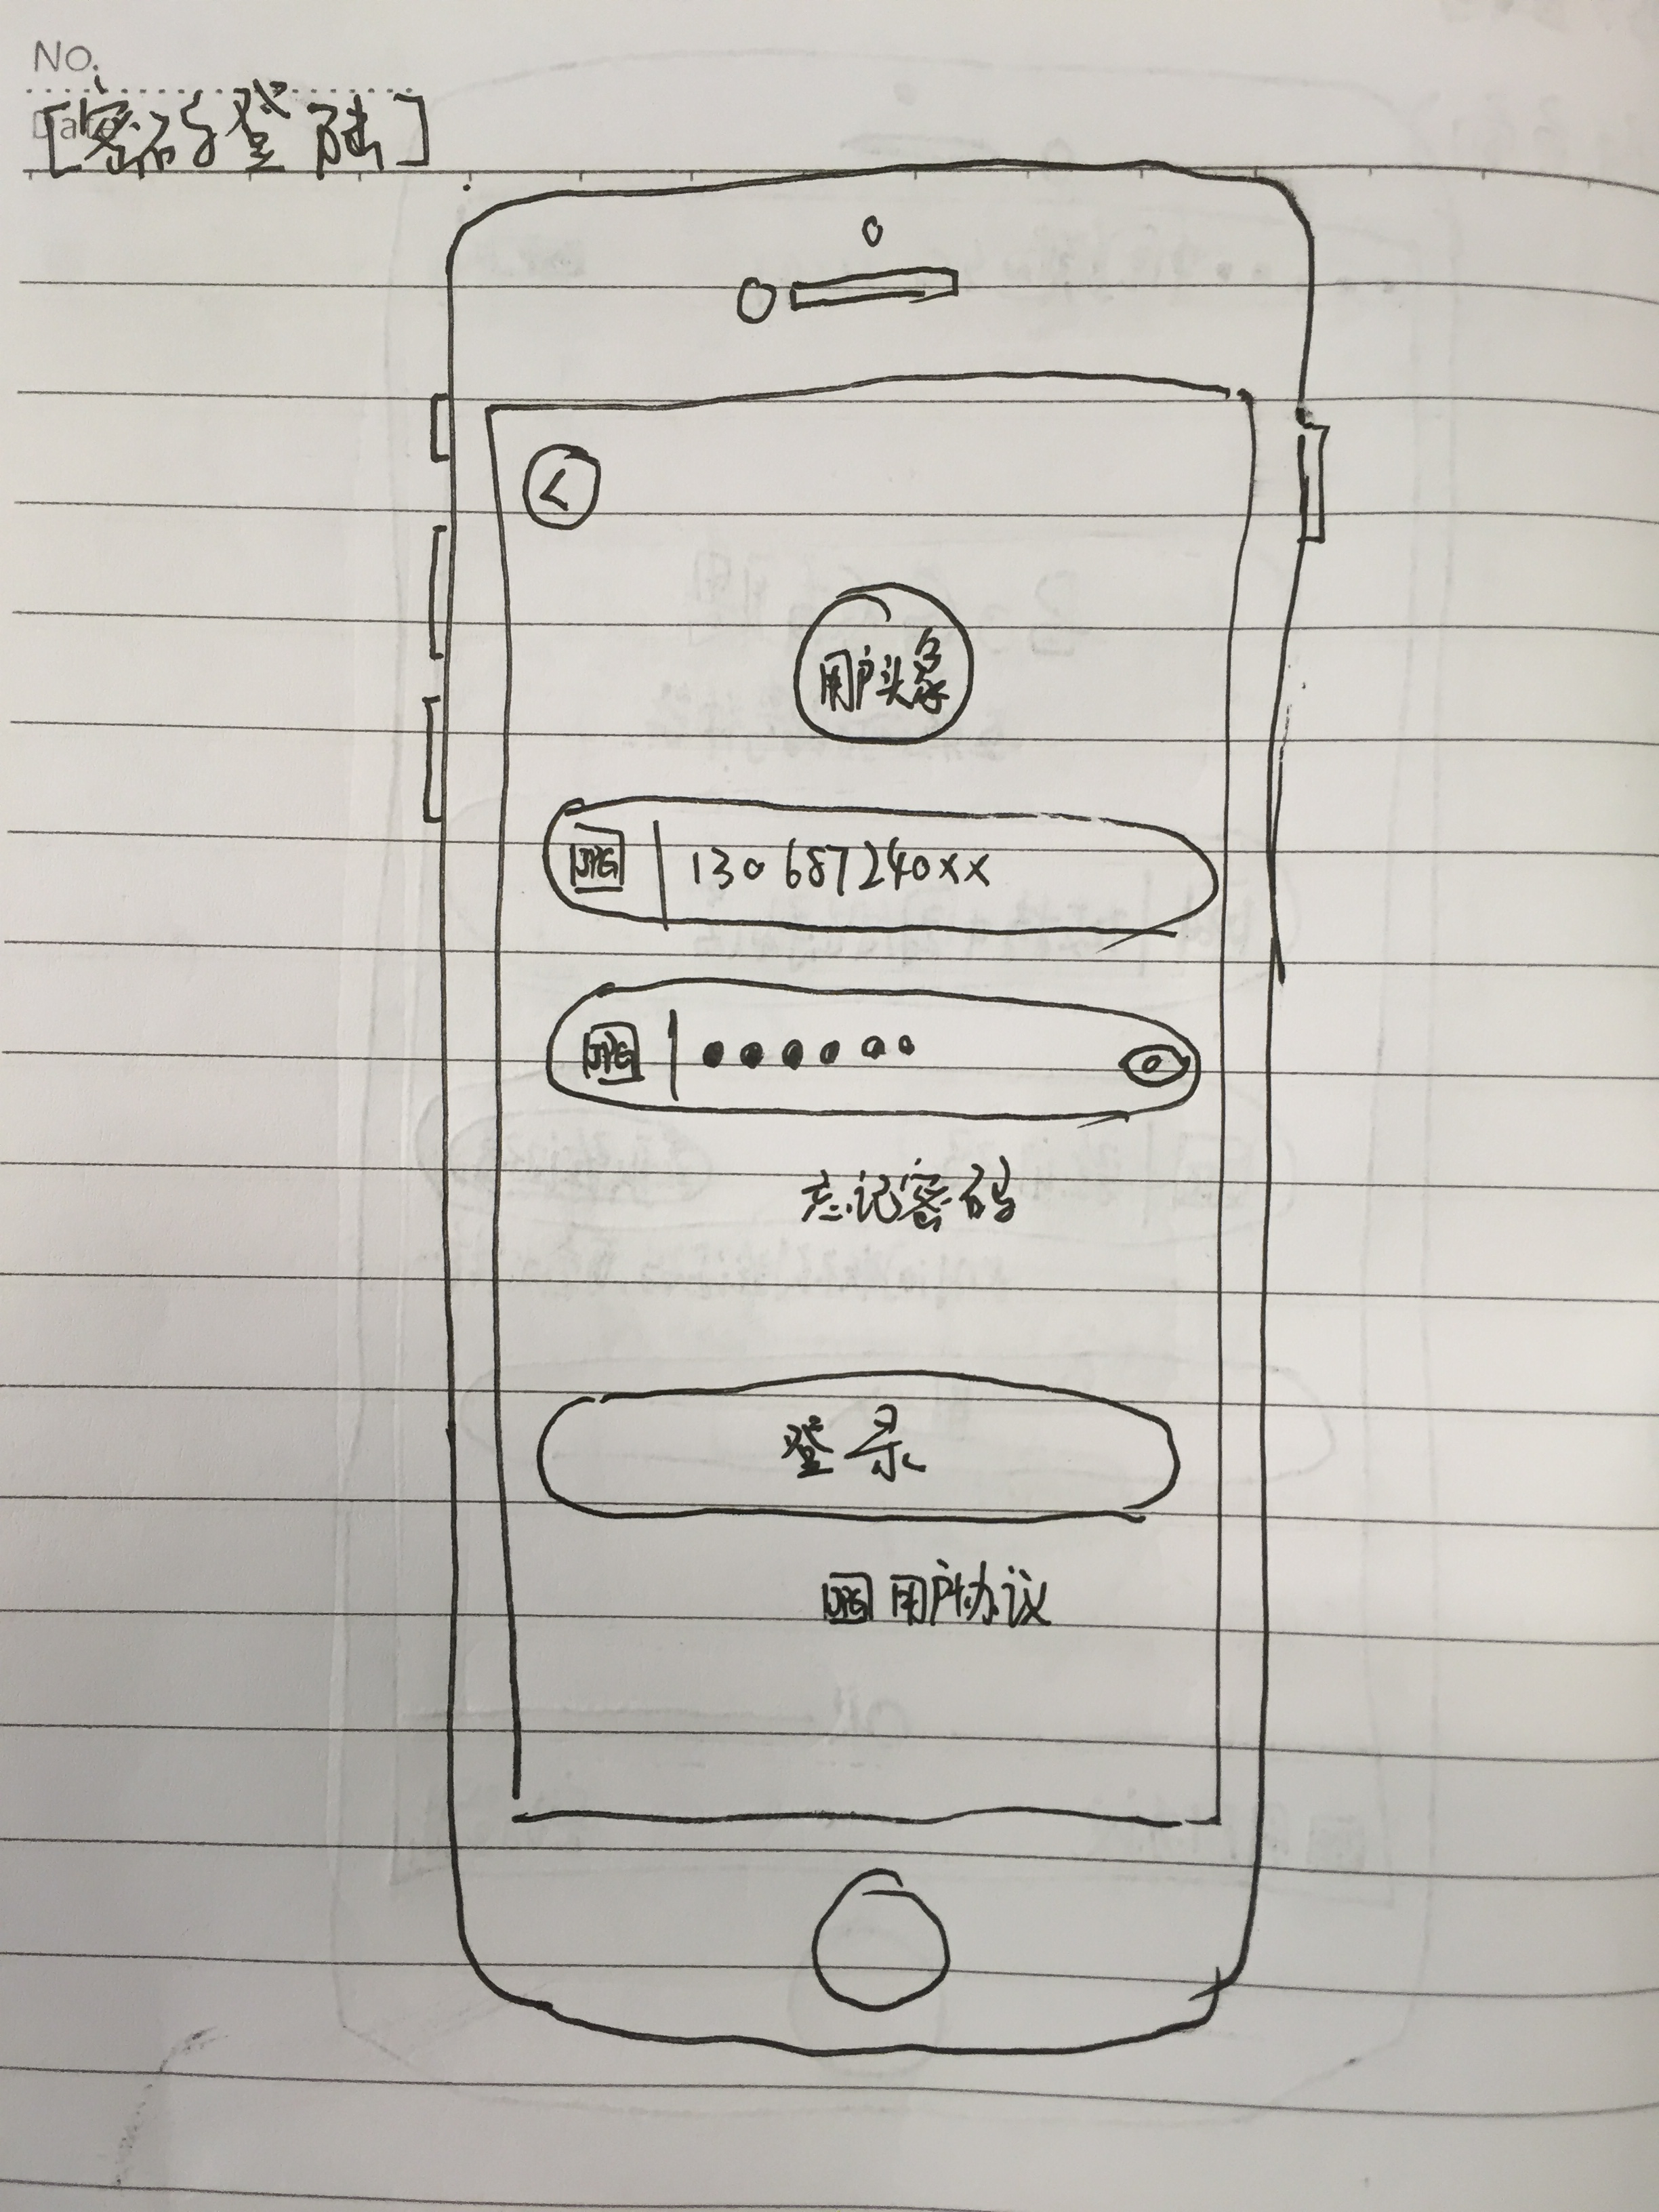 NO.
Date
[密码登陆]
<
用户头象
JPG 130687240xx
JPG
忘记密码
登录
JPG 用户协议